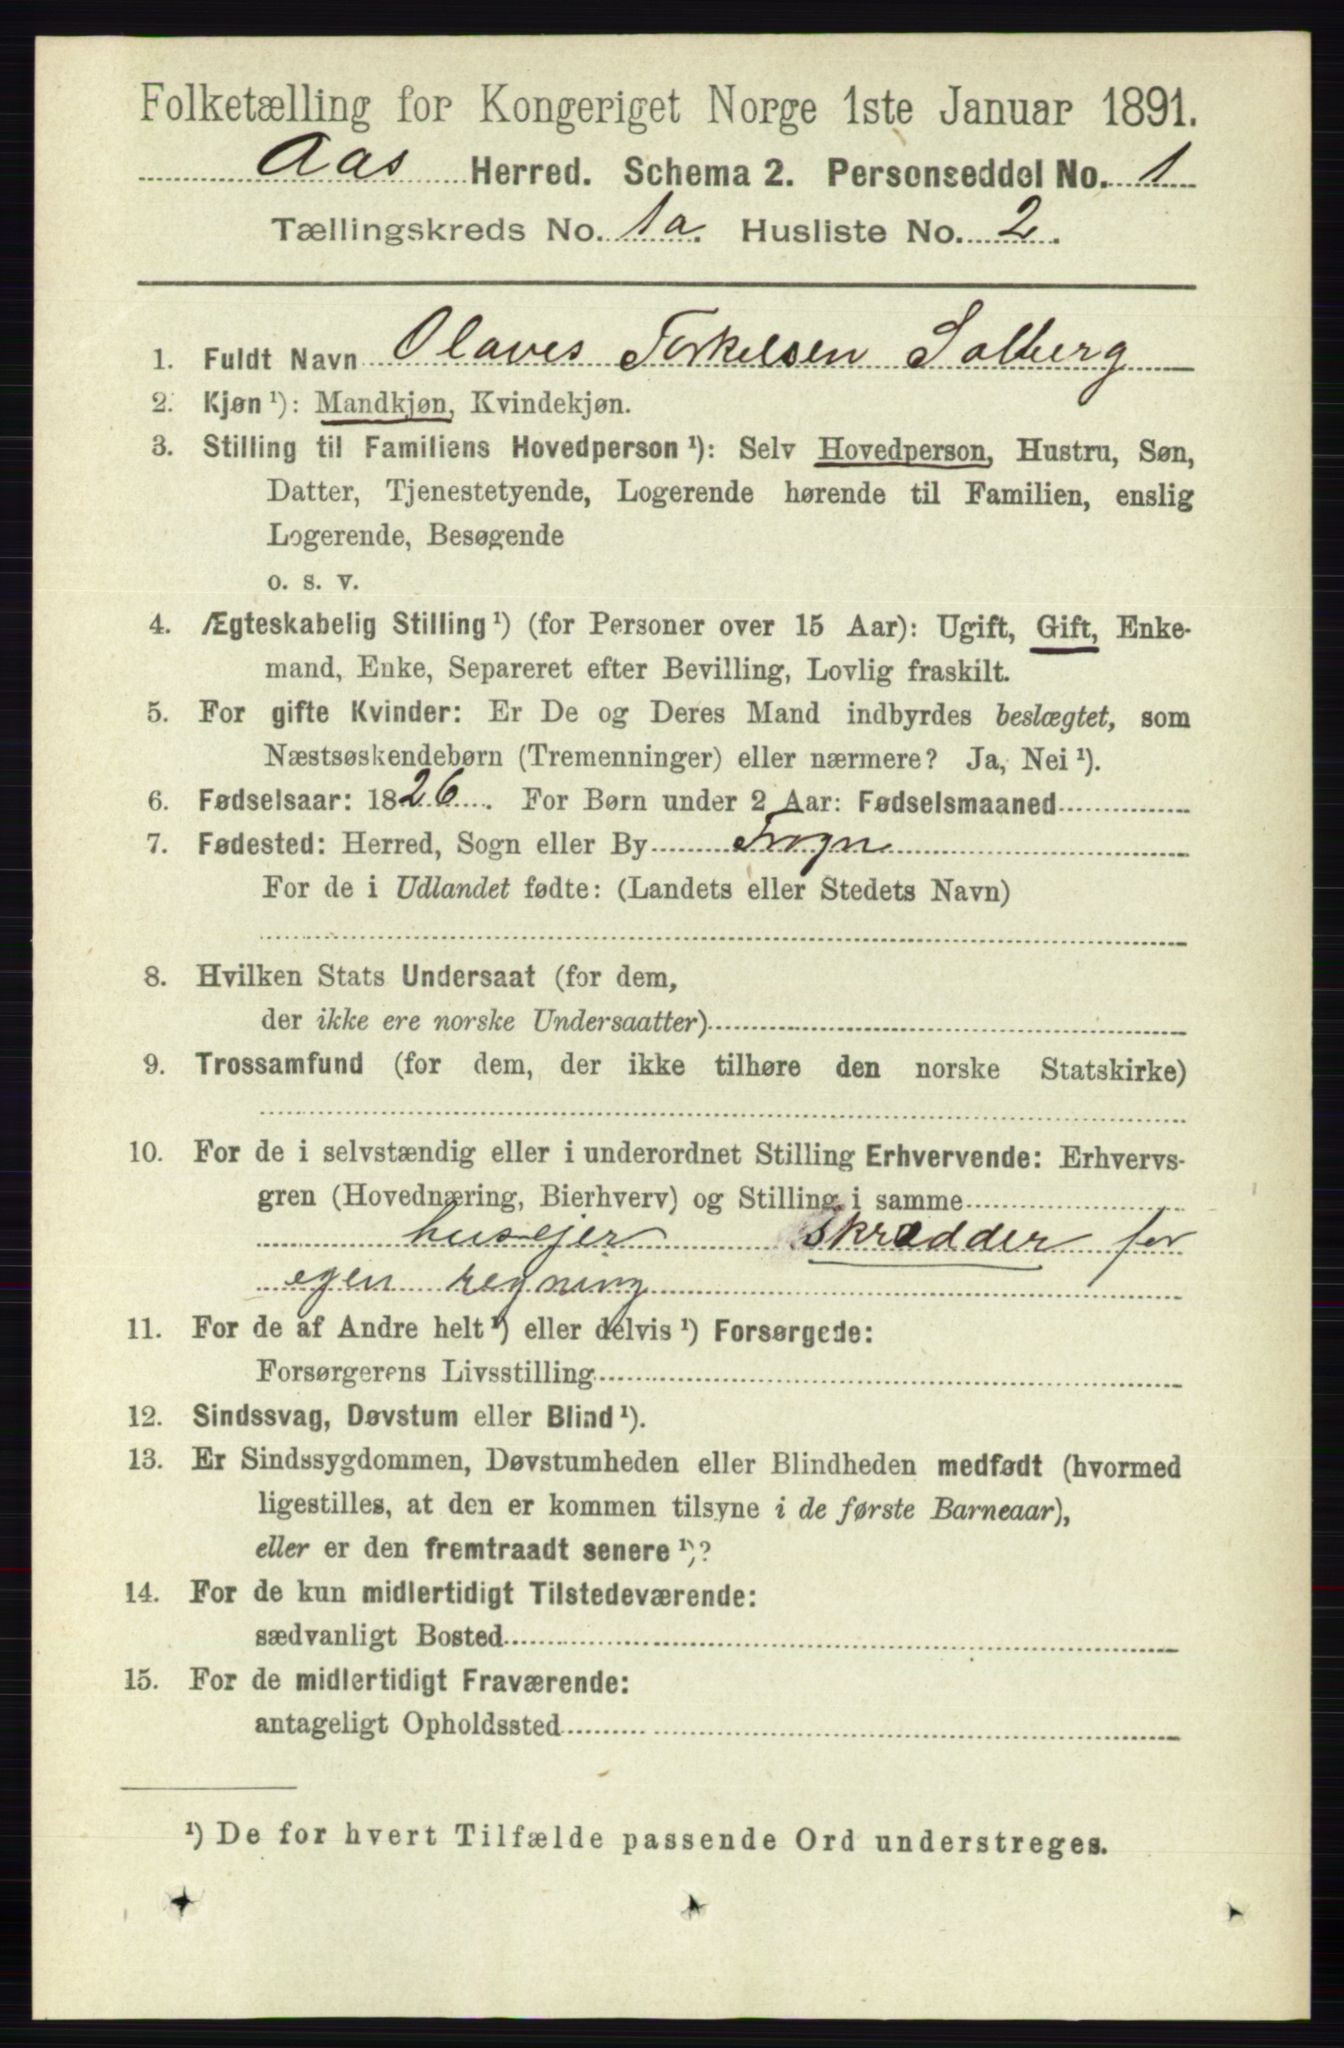 Folketælling for Kongeriget Norge 1ste Januar 1891.
Aas Herred. Schema 2. Personseddel No. 1
Tællingskreds No. 1a. Husliste No. 2.
1. Fuldt Navn Olaves Torkelsen Solberg
2. Kjøn ¹): Mandkjøn, Kvindekjøn.
3. Stilling til Familiens Hovedperson ¹): Selv Hovedperson, Hustru, Søn,
Datter, Tjenestetyende, Logerende hørende til Familien, enslig
Logerende, Besøgende
o. s. v.
4. Ægteskabelig Stilling ¹) (for Personer over 15 Aar): Ugift, Gift, Enke-
mand, Enke, Separeret efter Bevilling, Lovlig fraskilt.
5. For gifte Kvinder: Er De og Deres Mand indbyrdes beslægtet, som
Næstsøskendebørn (Tremenninger) eller nærmere? Ja, Nei ¹).
6. Fødselsaar: 1826. For Børn under 2 Aar: Fødselsmaaned
7. Fødested: Herred, Sogn eller By Frogn
For de i Udlandet fødte: (Landets eller Stedets Navn)
8. Hvilken Stats Undersaat (for dem,
der ikke ere norske Undersaatter)
9. Trossamfund (for dem, der ikke tilhøre den norske Statskirke)
10. For de i selvstændig eller i underordnet Stilling Erhvervende: Erhvervs-
gren (Hovednæring, Bierhverv) og Stilling i samme
husejer skrædder for
egen regning
11. For de af Andre helt ¹) eller delvis ¹) Forsørgede:
Forsørgerens Livsstilling
12. Sindssvag, Døvstum eller Blind ¹).
13. Er Sindssygdommen, Døvstumheden eller Blindheden medfødt (hvormed
ligestilles, at den er kommen tilsyne i de første Barneaar),
eller er den fremtraadt senere ¹)?
14. For de kun midlertidigt Tilstedeværende:
sædvanligt Bosted
15. For de midlertidigt Fraværende:
antageligt Opholdssted
¹) De for hvert Tilfælde passende Ord understreges.